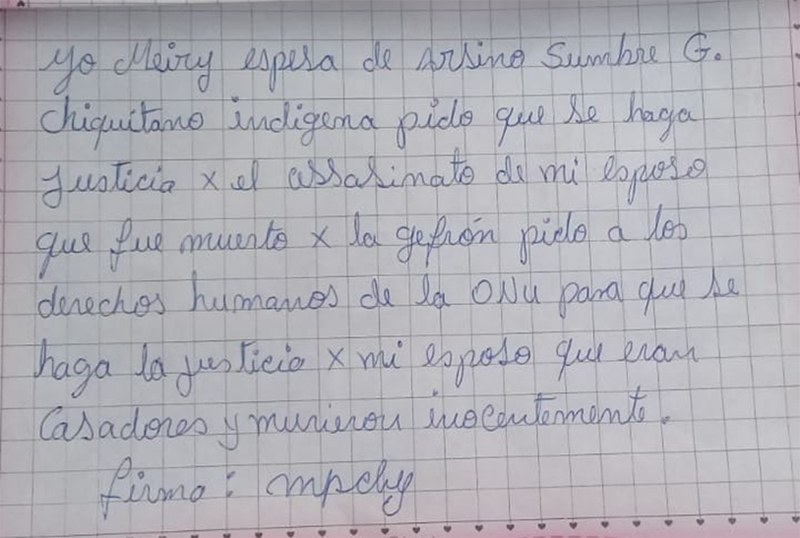 Yo Meiry espesa de Arsino Sumbre G.
Chiquitano indigena pido que se haga
Justicia x el assasinato de mi esposo
que fue muerto x la gefrón pido a los
derechos humanos de la ONU para que se
haga la justicia x mi esposo que eran
Casadores y murieron inocentemente.
firma: mpchy